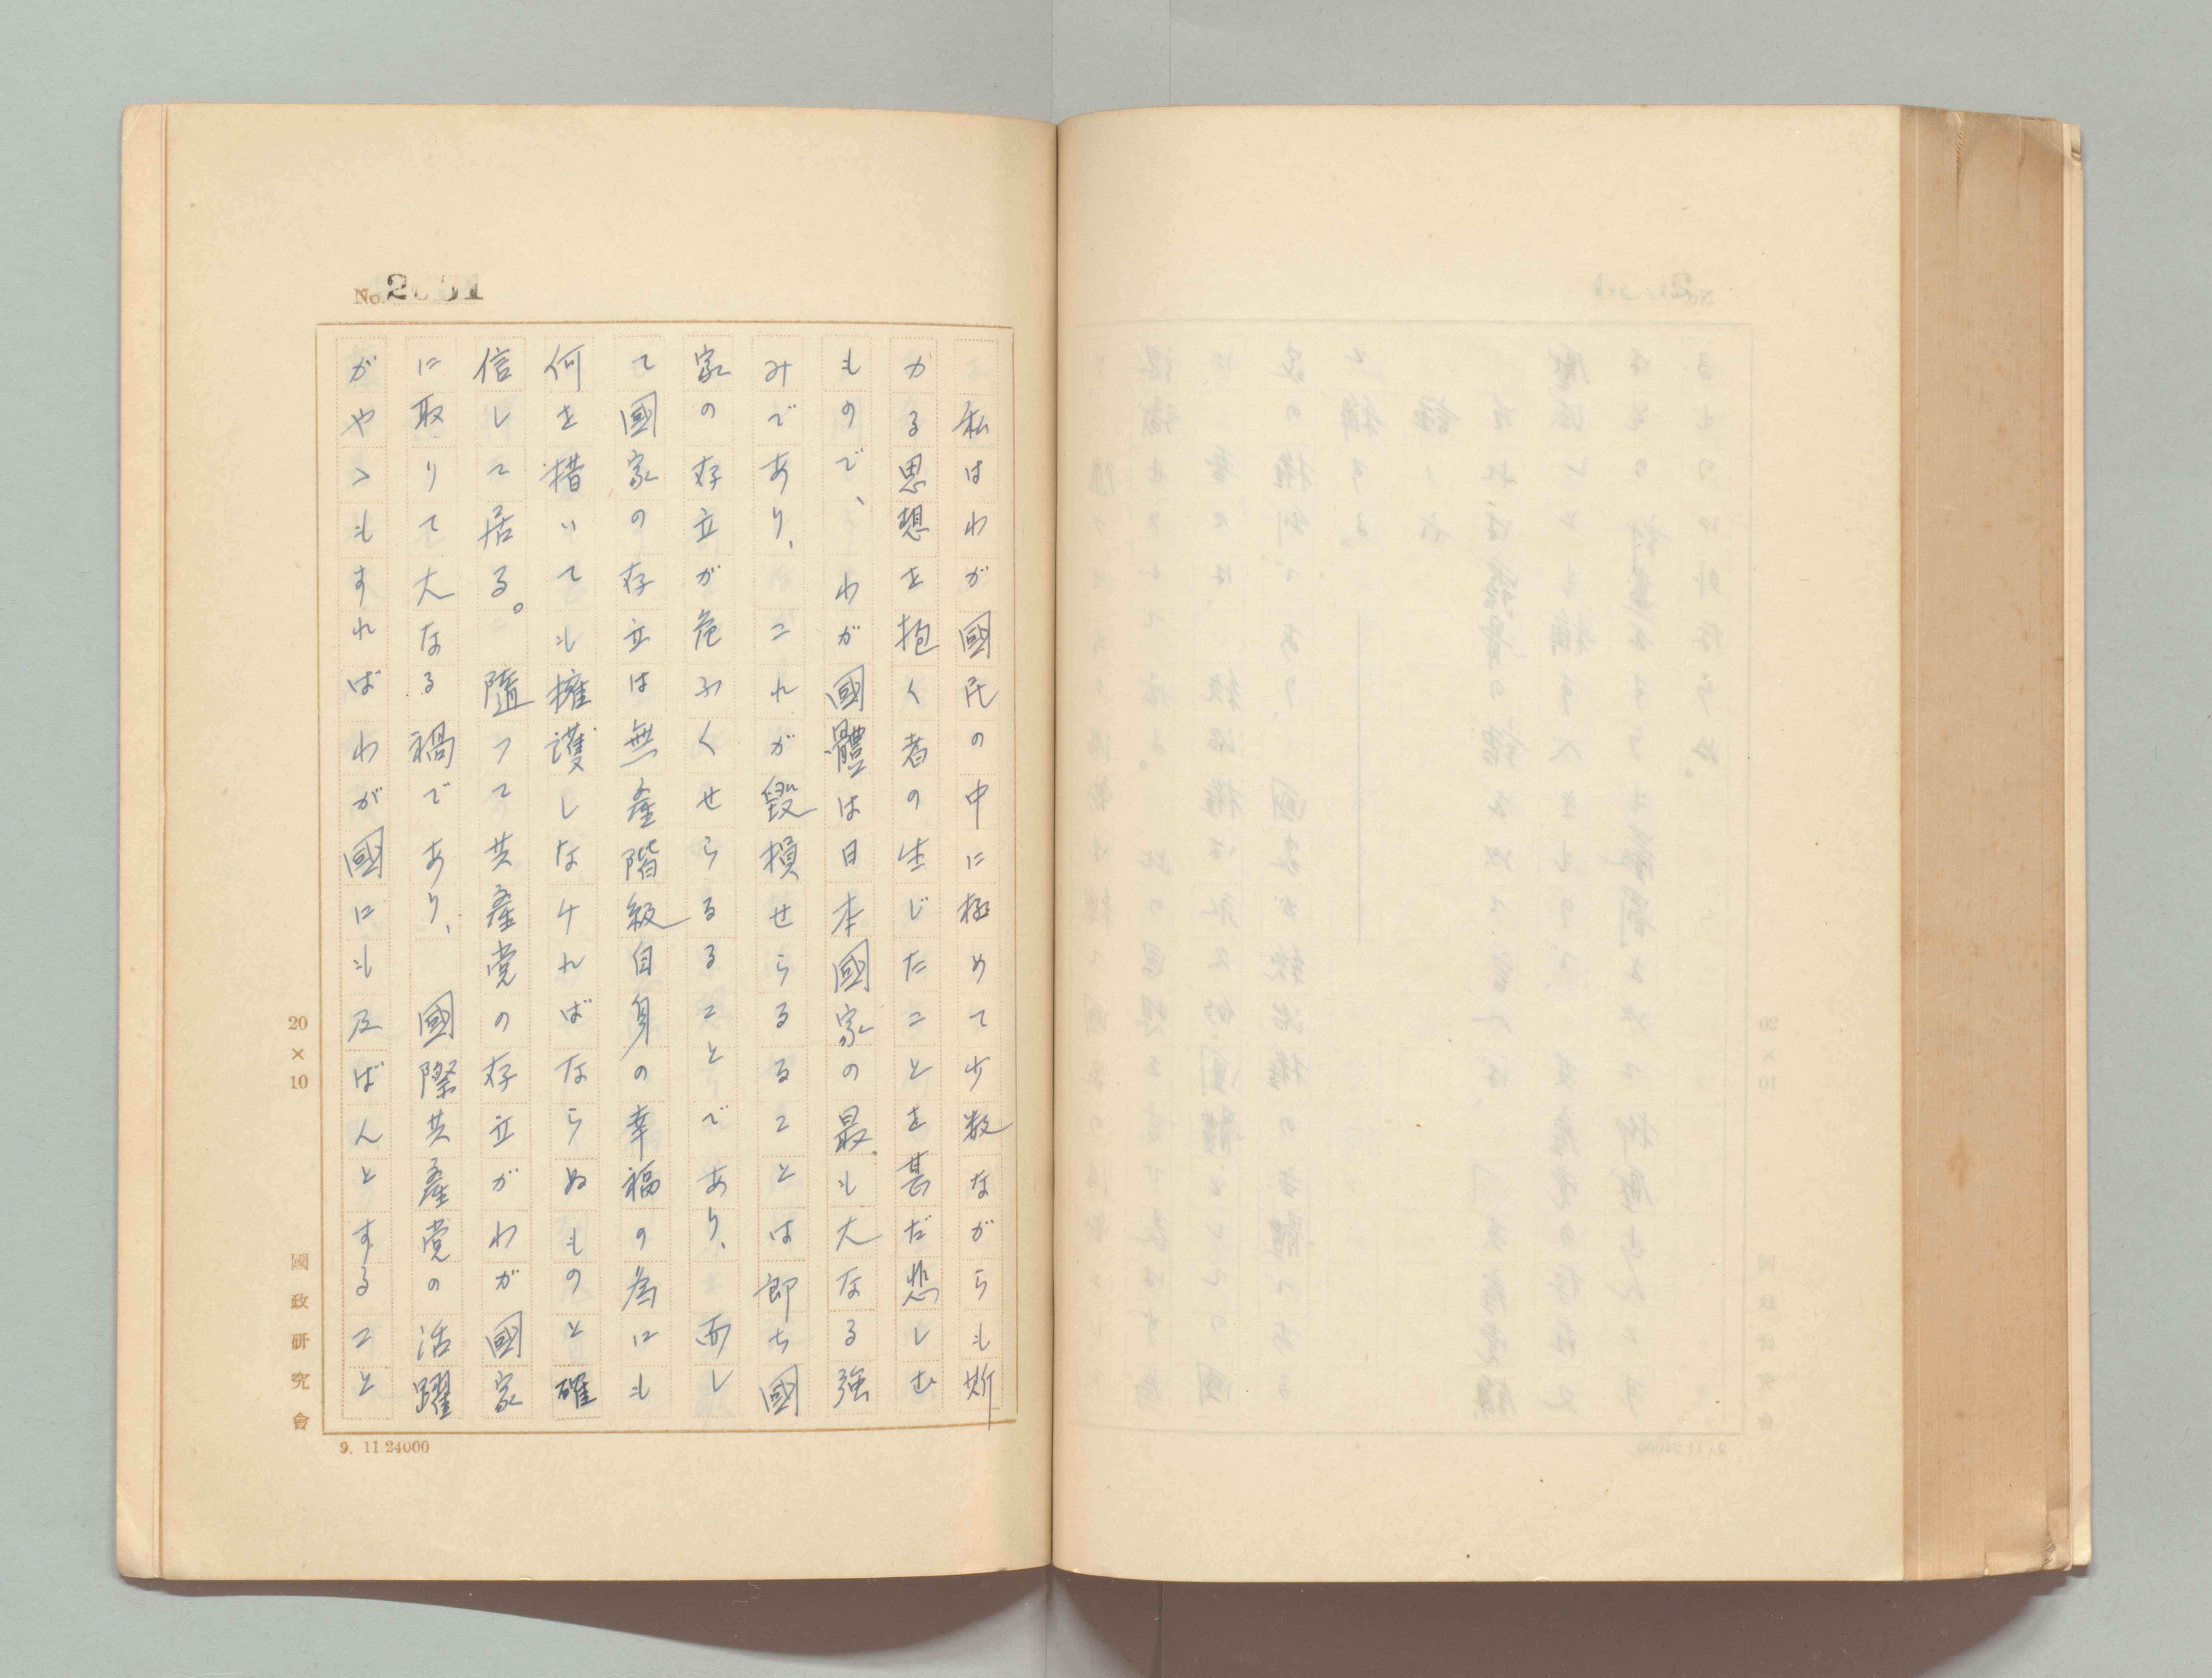 No. 2031
私はわが國民の中に極めて少数ながらも斯
かる思想を抱く者の生じたことを甚だ悲しむ
もので、わが國體は日本國家の最も大なる強
みであり、これが毀損せらるることは即ち國
家の存立が危ふくせらるることであり、而し
て國家の存立は無產階級自身の幸福の為にも
何を措いても擁護しなければならぬものと確
信して居る。隨つて共產党の存立がわが國家
に取りて大なる禍であり、國際共產党の活躍
がやゝもすればわが國にも及ばんとすること
20×10
國政研究會
9. 11.24000